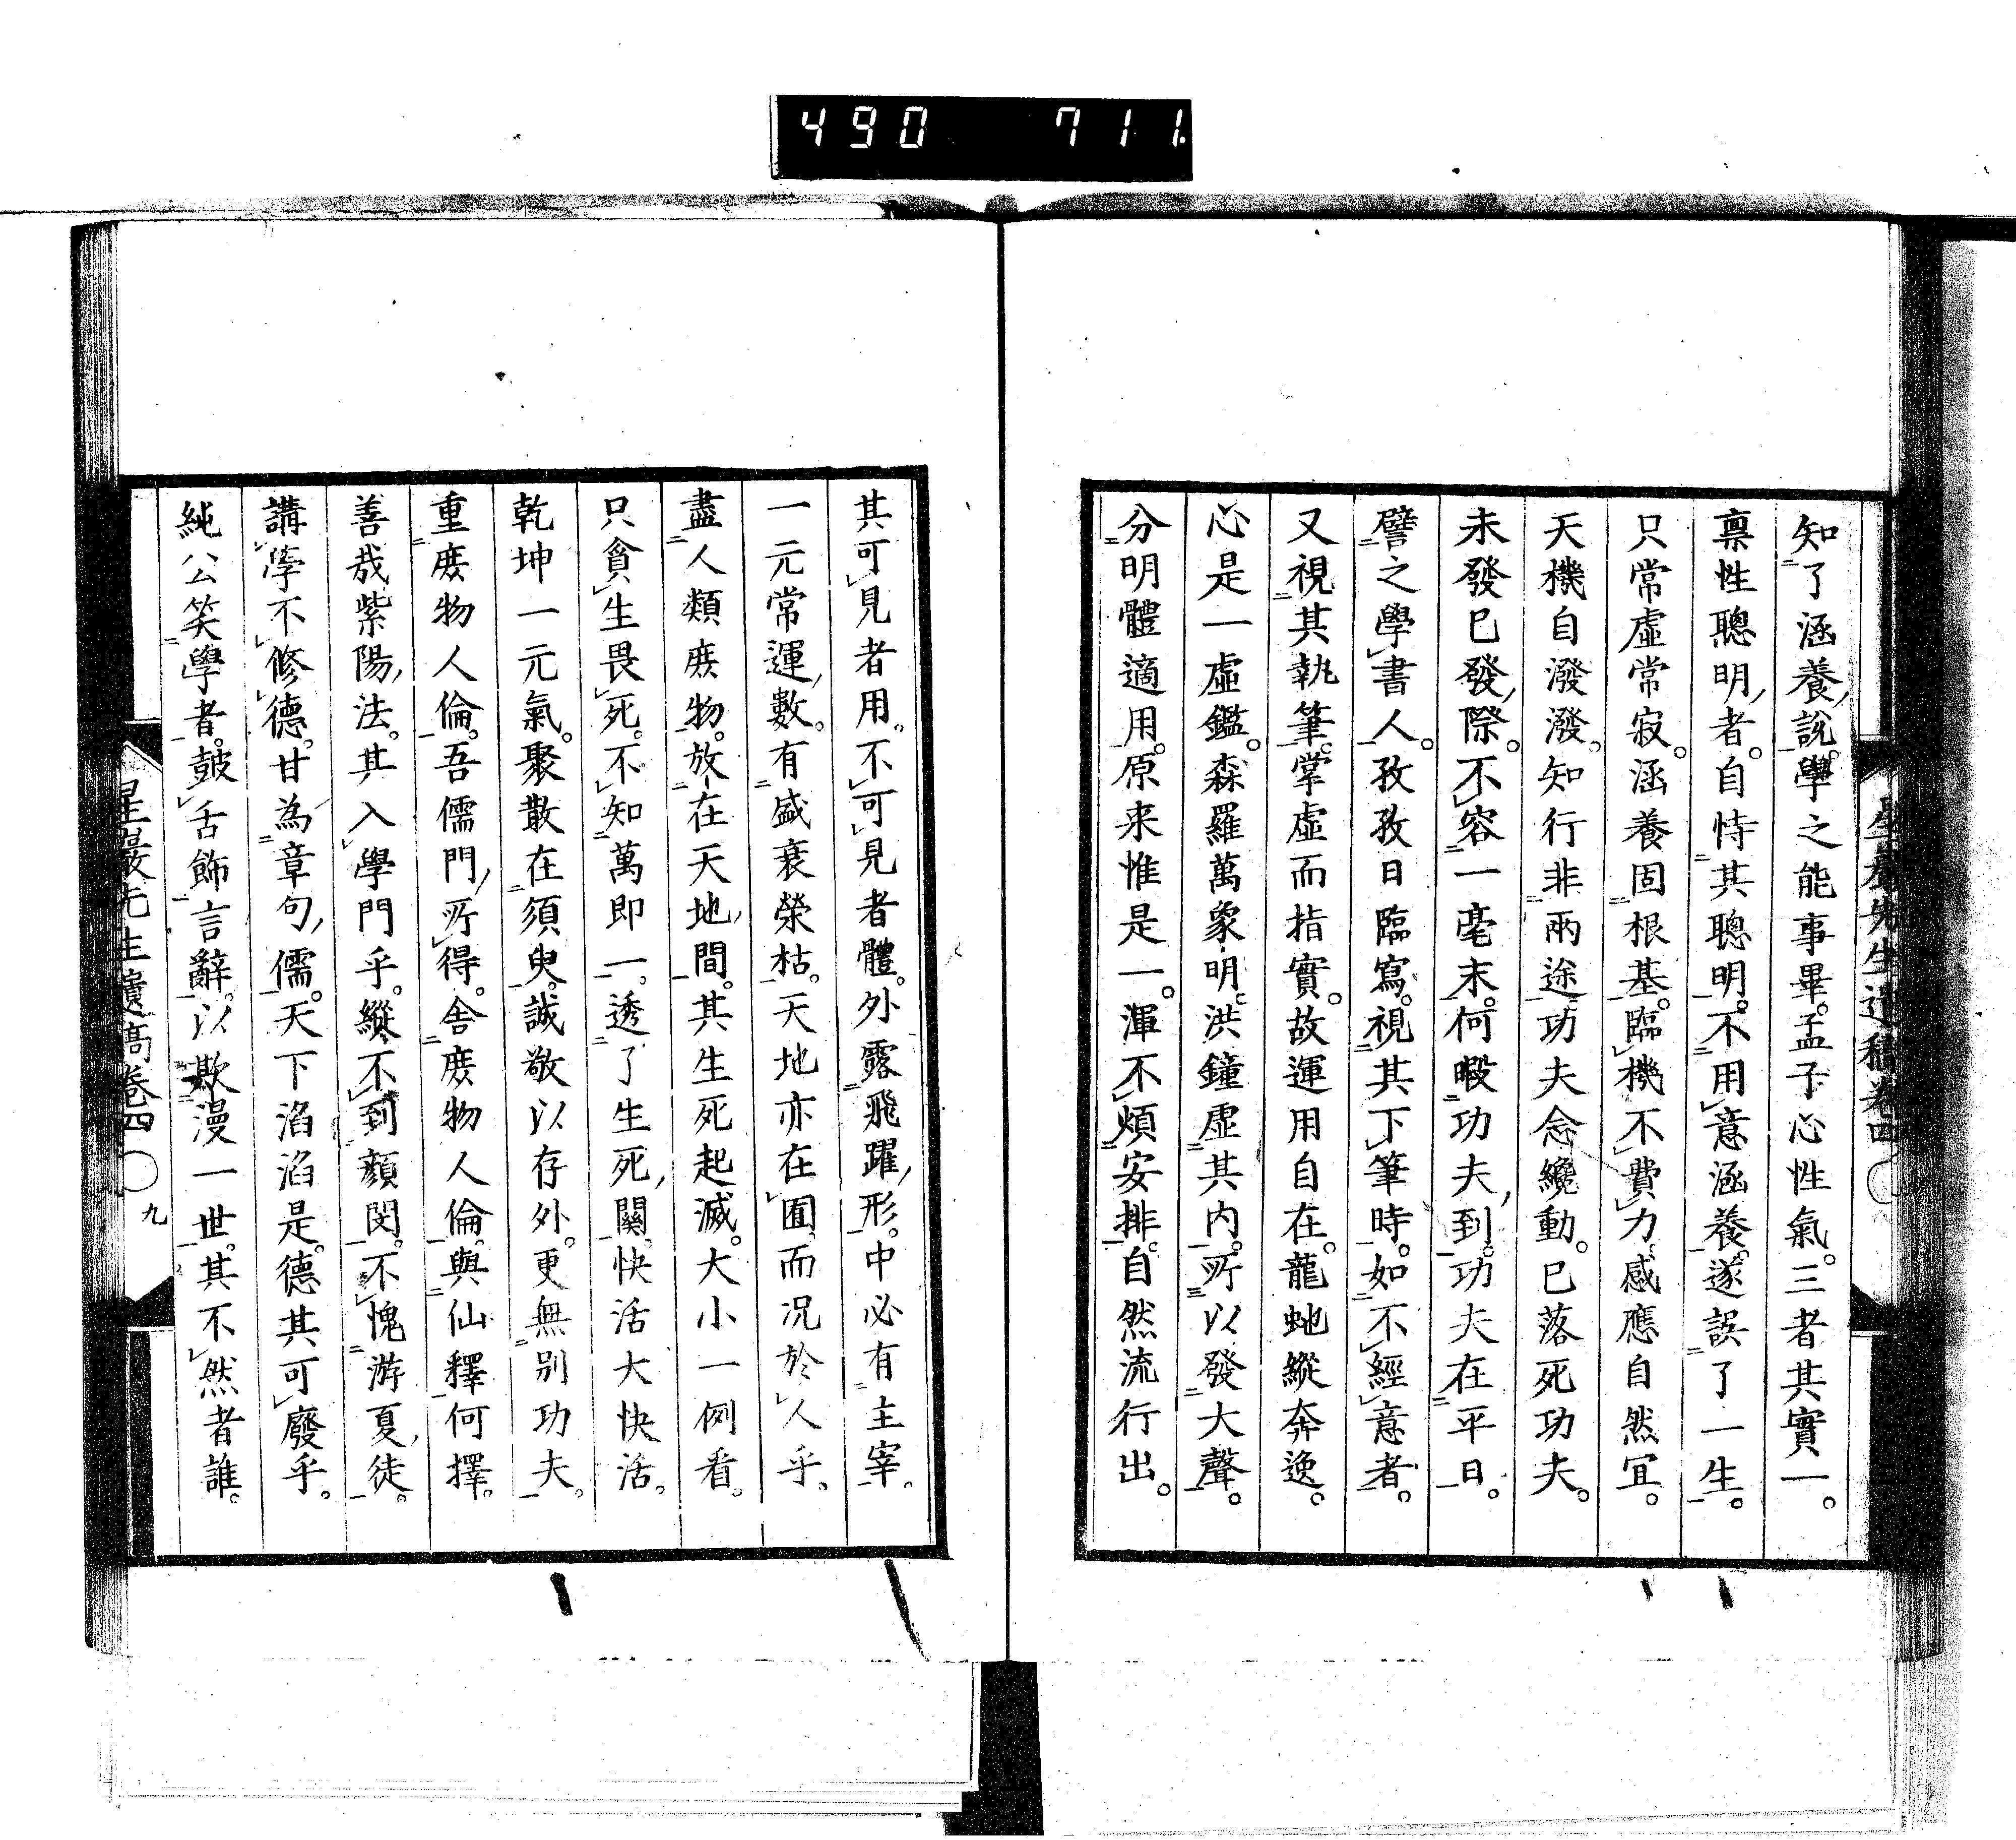 490 711
星巖先生遺稿卷四
知了涵養說。學之能事畢。孟子心性氣。三者其實一。
稟性聰明者。自恃其聰明。不用意涵養。遂誤了一生。
只常虛常寂。涵養固根基。臨機不費力。感應自然宜。
天機自潑潑。知行非兩途。功夫念纔動。已落死功夫。
未發已發際。不容一毫末。何暇功夫到。功夫在平日。
譬之學書人。孜孜日臨寫。視其下筆時。如不經意者。
又視其執筆。掌虛而指實。故運用自在。龍虵縱奔逸。
心是一虛鑑。森羅萬象明。洪鐘虛其内。所以發大聲。
分明體適用。原来惟是一。渾不煩安排。自然流行出。
其可見者用。不可見者體。外露飛躍形。中必有主宰。
一元常運數。有盛衰榮枯。天地亦在囿。而況於人乎。
盡人類庶物。放在天地間。其生死起滅。大小一例看。
只貪生畏死。不知萬即一。透了生死關。快活大快活。
乾坤一元氣。聚散在須臾。誠敬以存外。更無別功夫。
重庶物人倫。吾儒門所得。舍庶物人倫。與仙釋何擇。
善哉紫陽法。其入學門乎。縱不到顏閔。不愧游夏徒。
講學不修德。甘為章句儒。天下滔滔是。德其可廢乎。
純公笑學者。鼓舌飾言辭。以欺漫一世。其不然者誰。
星巖先生遺稿卷四 九